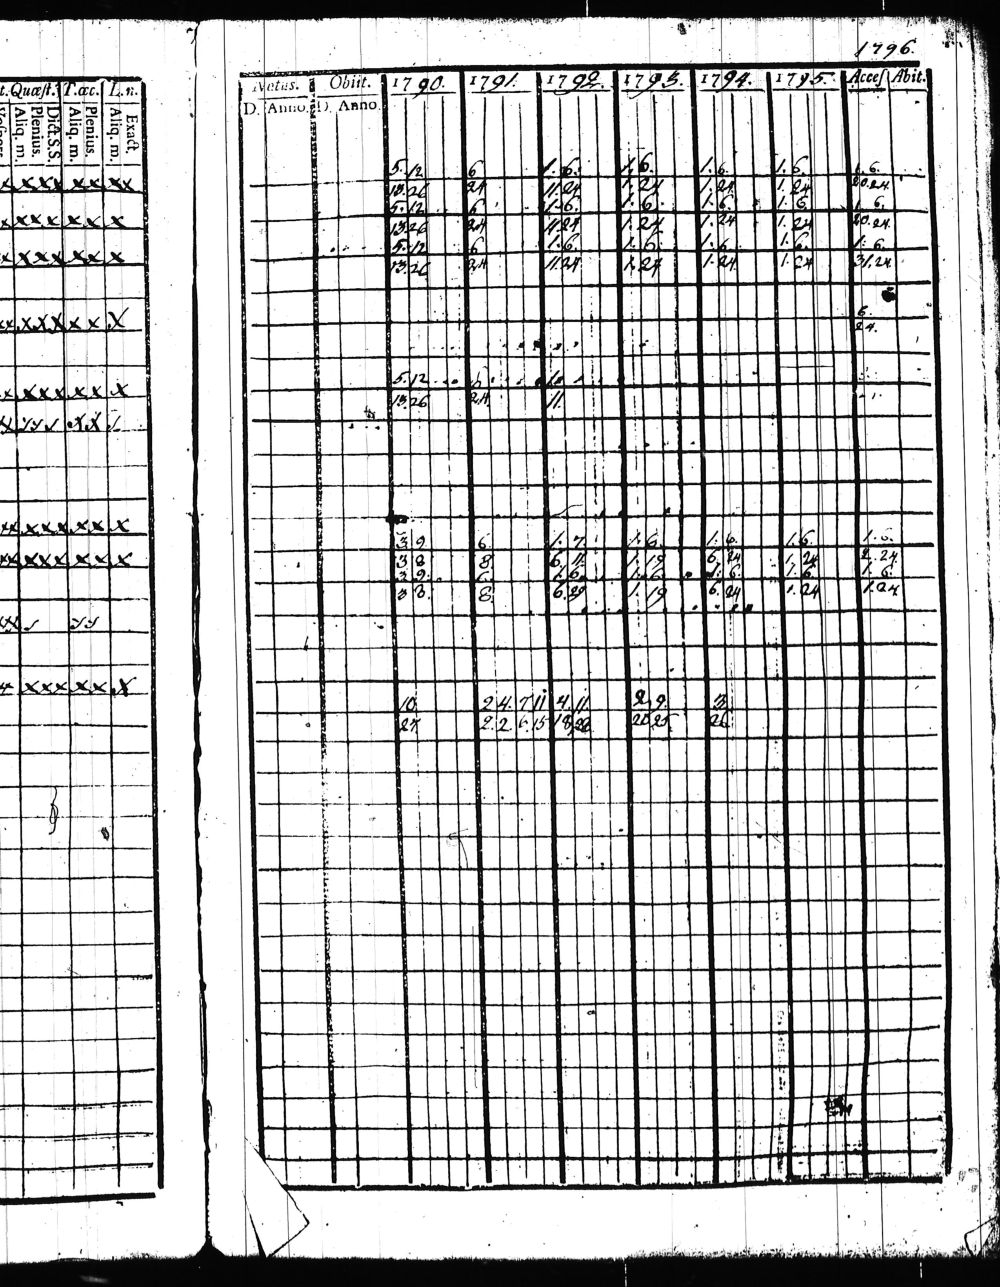 1796.
t. Quæſt. T. œc. L. n.
Aliq. m. Plenius. Dict. S.S. Aliq. m. Plenius. Aliq. m. Exact.
Natus. Obiit. 1790. 1791. 1792. 1793. 1794. 1795. Acceſ Abit.
D. Anno. D. Anno.
5. 12 6 1. 6. 1. 6. 1. 6. 1. 6. 1. 6.
13. 26 24 11. 24 1. 24 1. 24 1. 24 20. 24
5. 12 6 1. 6. 1. 6. 1. 6. 1. 6 6.
13. 26 24 11. 24 1. 24 1. 24 1. 24 20. 24
5. 12 6 1. 6. 1. 6. 1. 6. 1. 6. 1. 6.
13. 26 24 11. 24 1. 24 1. 24 1. 24 31. 24
6.
24.
5. 12
13. 26 24 11.
3 9 6 1. 7. 1. 6. 1. 6. 1. 6. 1. 6.
3 8 8. 6. 11. 1. 19 6. 24 1. 24 2. 24
3. 9. 6. 6. 6. 1. 6. 1. 6. 1. 6. 1. 6.
3 8. 8. 6. 29 1. 19 6. 24 1. 24 1. 24
10. 2 4. 7 11 4. 11. 2. 9. 3.
27 2. 2 6. 15 18. 20. 25. 26.